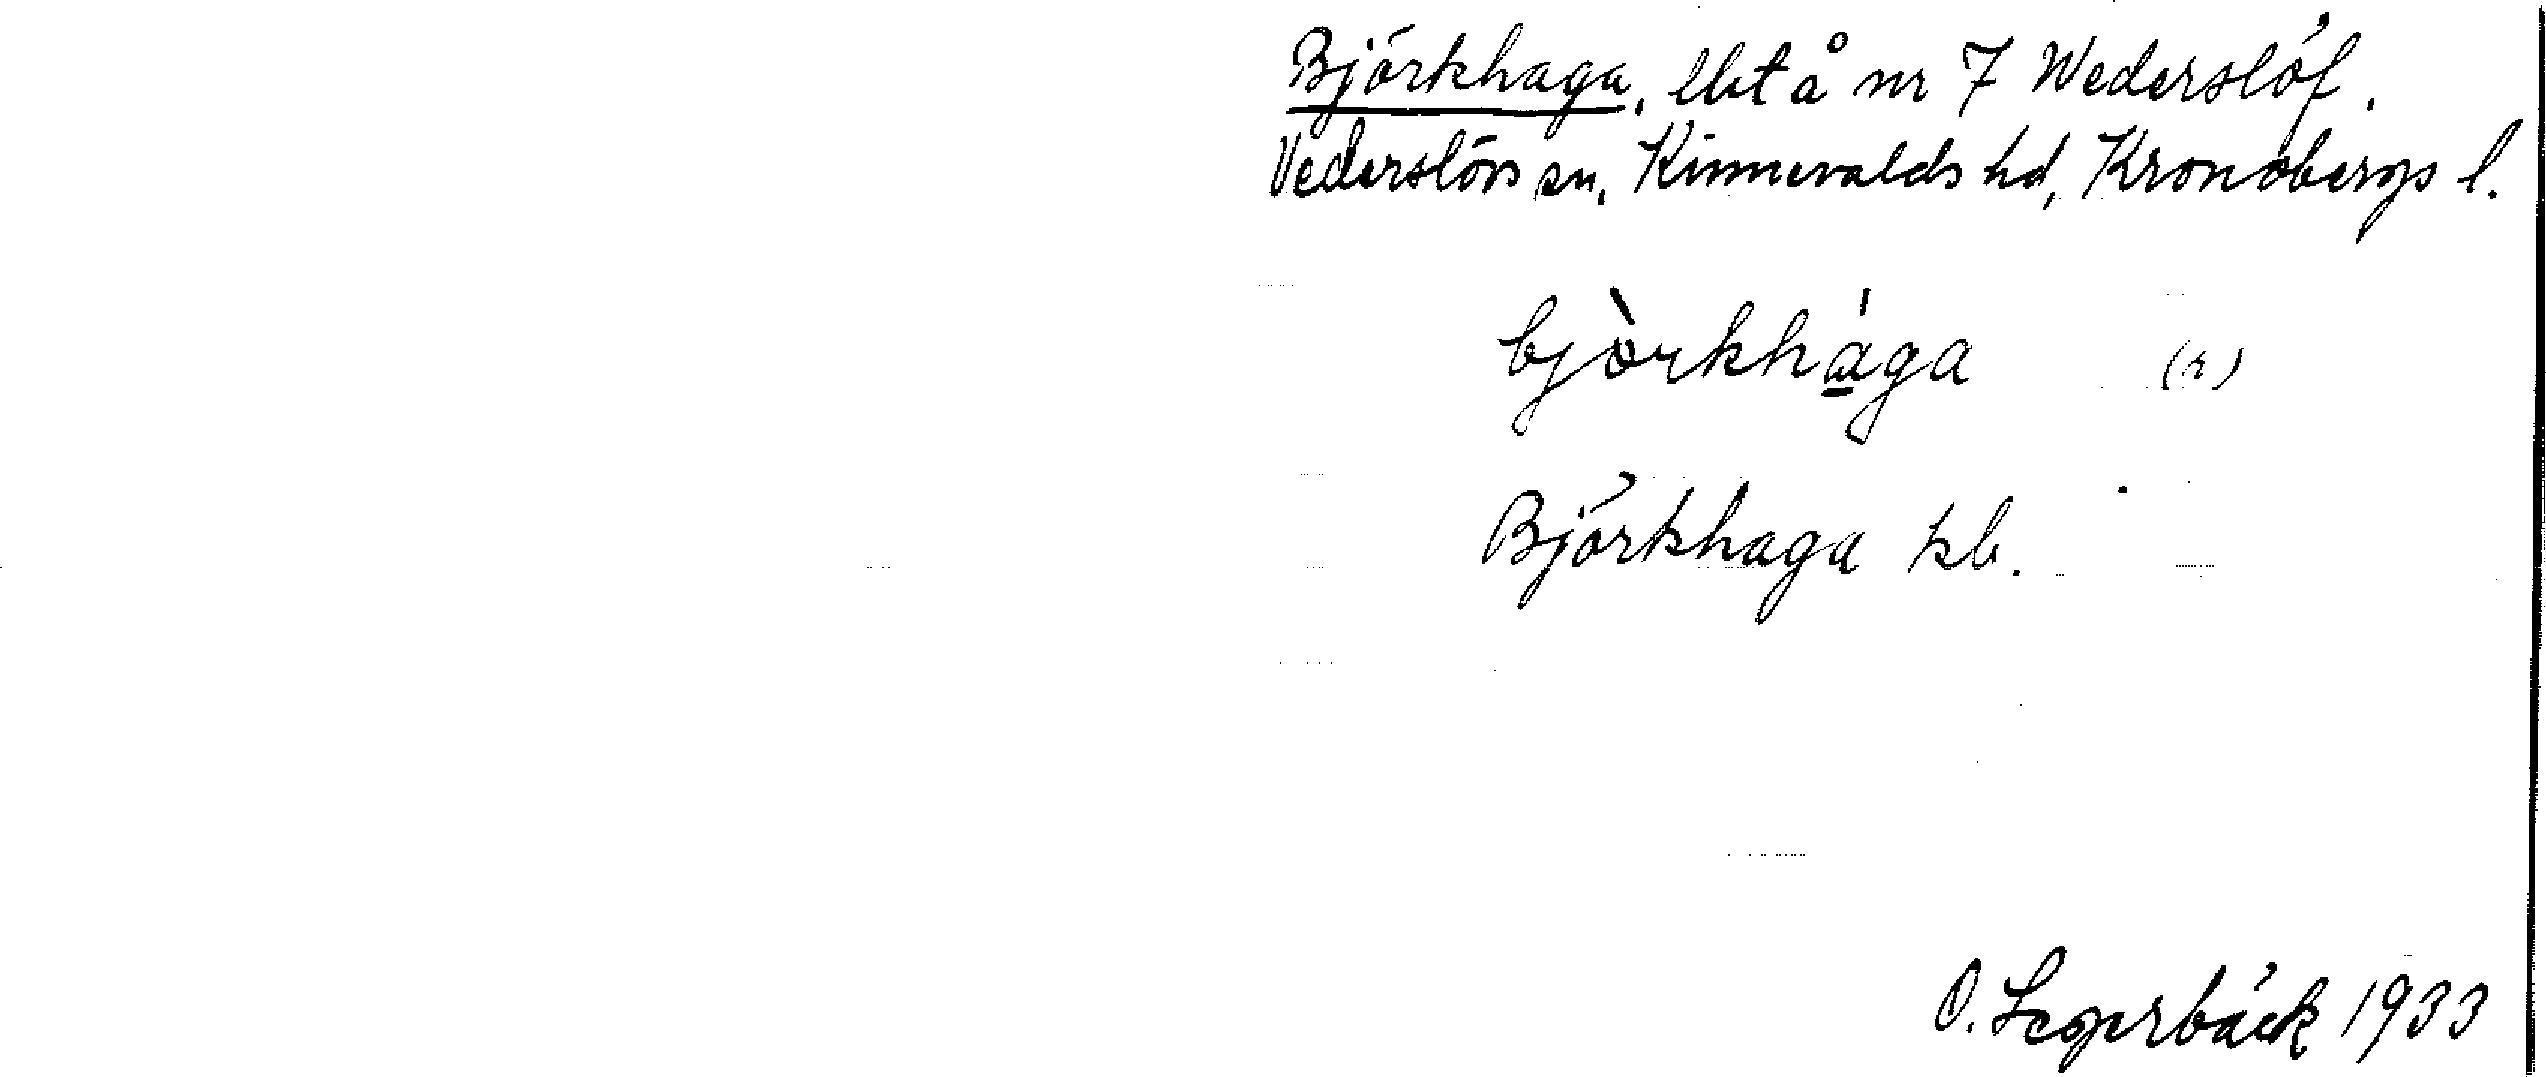 Björkhaga, lht å nr 7 Wederslöf.
Vederslövs sn, Kinnevalds hd, Kronobergs l.
bjòrkhága (r)
Björkhaga kb.
O. Segerbäck 1933